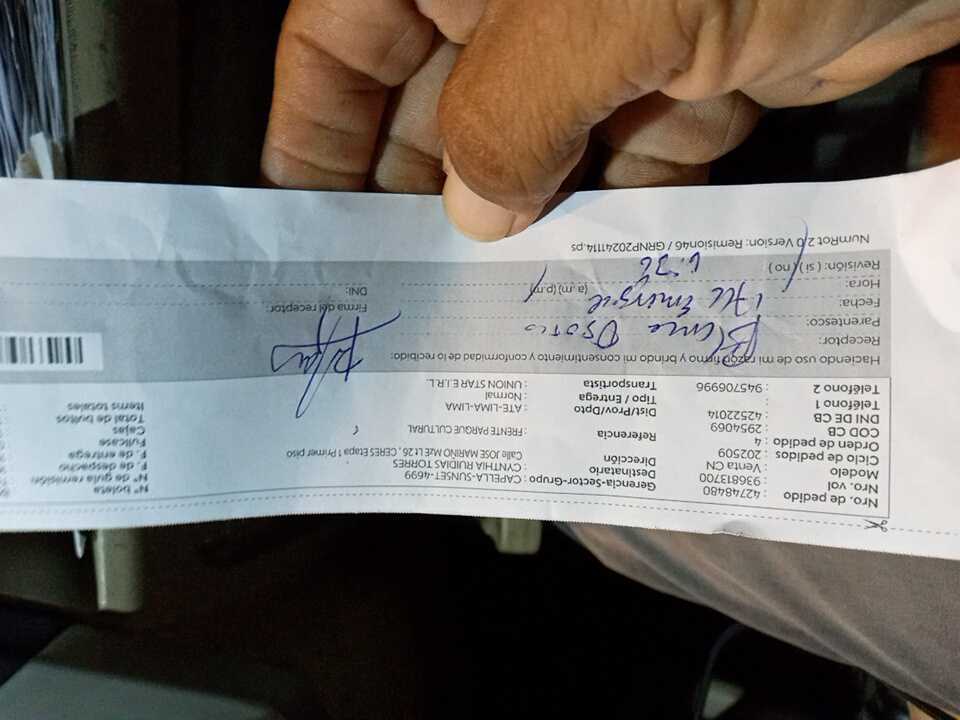 Nro. de pedido : 42748480
Nro. vol : 936813700
Modelo : Venta CN
Ciclo de pedidos : 202509
Orden de pedido : 4
COD CB : 2954069
DNI DE CB : 42522014
Teléfono 1 :
Teléfono 2 : 945706996
Gerencia-Sector-Grupo : CAPELLA-SUNSET-4699
Destinatario : CYNTHIA RUIDIAS TORRES
Dirección : Calle JOSE MARINO MzE Lt 26 , CERES Etapa 1 Primer piso
Referencia : FRENTE PARQUE CULTURAL
Dist/Prov/Dpto : ATE-LIMA-LIMA
Tipo / Entrega : Normal
Transportista : UNION STAR E.I.R.L
Nº boleta
Nº de guía remisión
F. de despacho
F. de entrega
Fullcase
Cajas
Total de bultos
Items totales
Haciendo uso de mi razón firmo y brindo mi consentimiento y conformidad de lo recibido:
Receptor: Blanca Osorio
Parentesco:
Fecha:
Hora: (a.m) (p.m)
Revisión: ( si ) ( no )
Firma del receptor
DNI:
NumRot 2.0 Version: Remision46 / GRNP20241114.ps